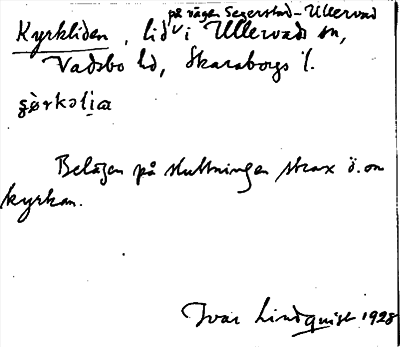 på vägen Segerstad-Ullervad
Kyrkliden, lid i Ullervads sn,
Vadsbo hd, Skaraborgs l.
Belägen på sluttningen strax ö. om
kyrkan.
Ivar Lindquist 1928